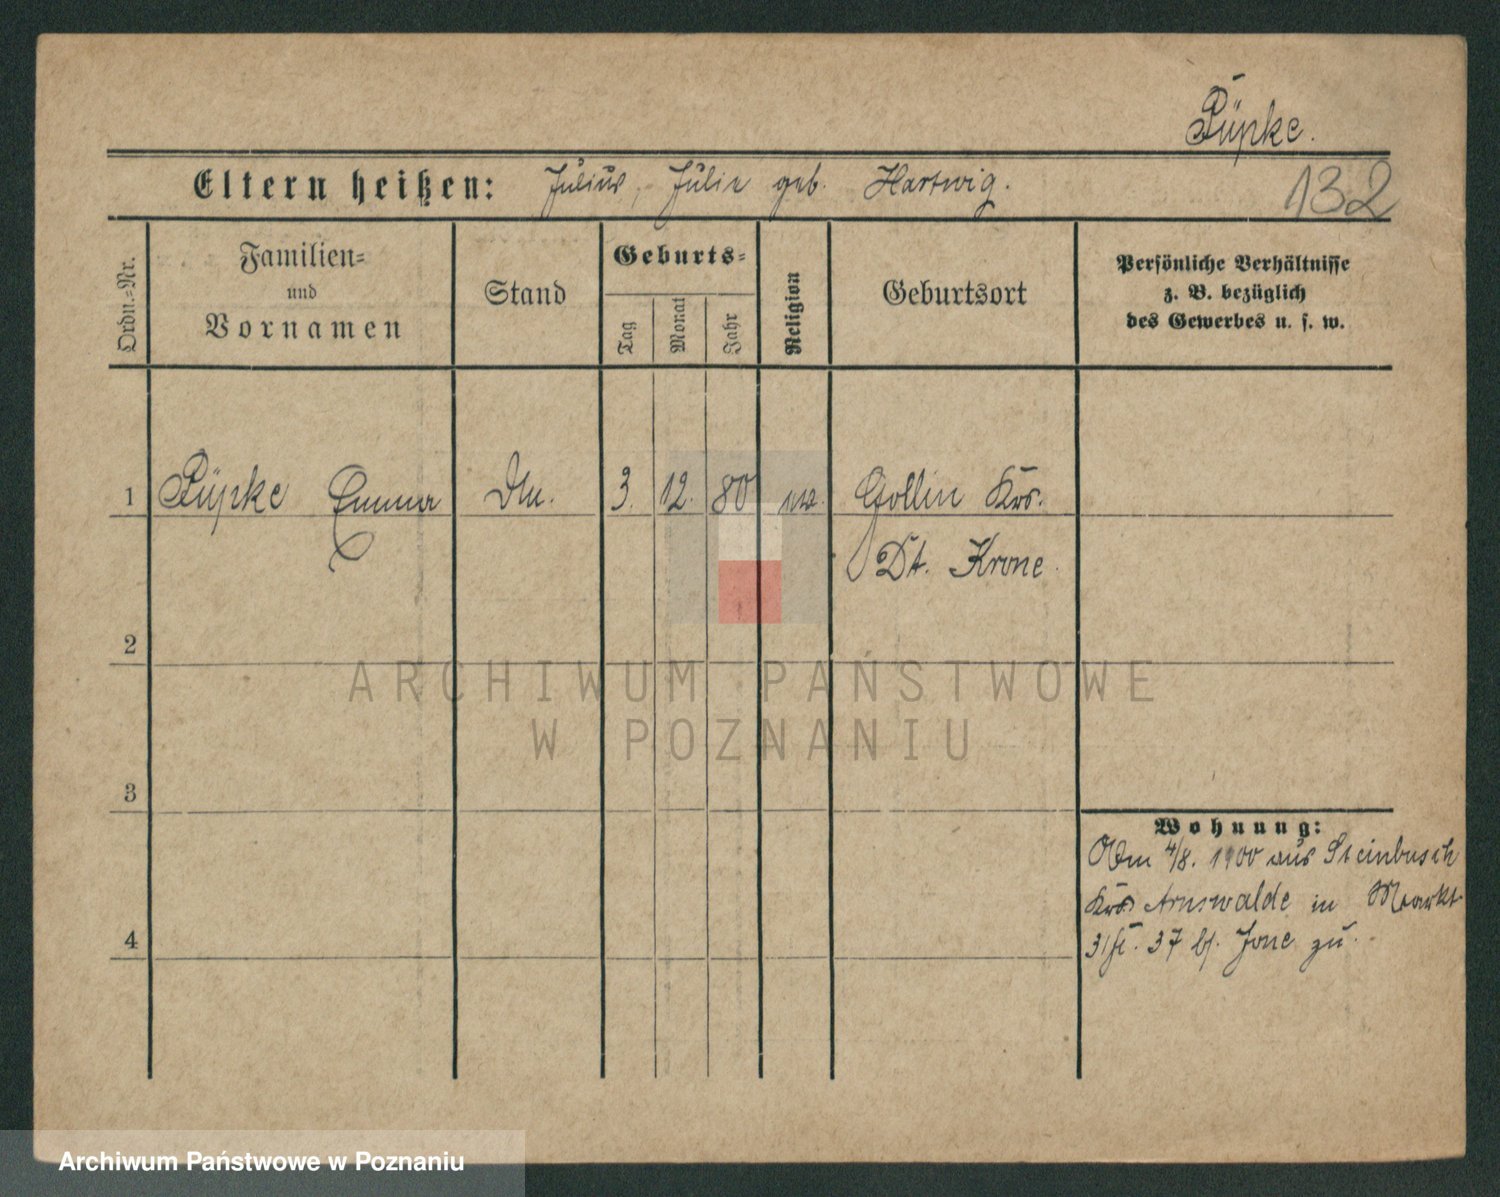 Püpke.
Eltern heißen: Julius, Julie geb. Hartwig.
132
Ordn.=Nr.
Familien=
und
Vornamen
Stand
Geburts=
Tag
Monat
Jahr
Religion
Geburtsort
Persönliche Verhältnisse
z. B. bezüglich
des Gewerbes u. s. w.
1 Püpke Emma 3. 12. 80 Gollin Krs.
Dt. Krone.
2
3
4
ARCHIWUM PAŃSTWOWE
W POZNANIU
Wohnung:
4/8. 1900 aus Steinbusch
Krs Arnswalde in Markt
37 bf. zu.
Archiwum Państwowe w Poznaniu